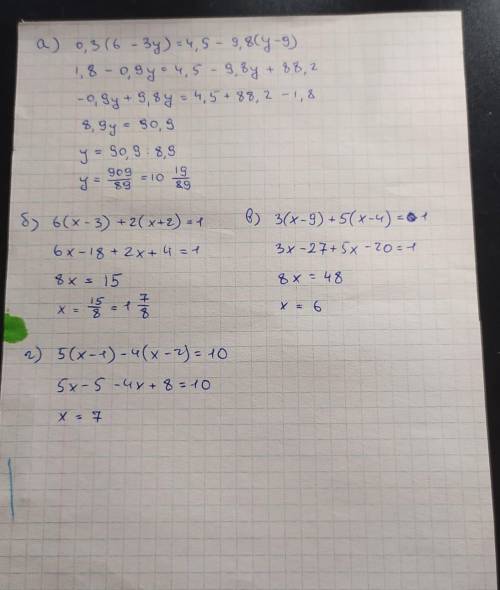 а) 0,3(6 - 3y) = 4,5 - 9,8(y-9)
1,8 - 0,9y = 4,5 - 9,8y + 88,2
-0,9y + 9,8y = 4,5 + 88,2 - 1,8
8,9y = 90,9
y = 90,9 : 8,9
y = 909/89 = 10 19/89
б) 6(x-3) + 2(x+2) = 1
6x - 18 + 2x + 4 = 1
8x = 15
x = 15/8 = 1 7/8
в) 3(x-9) + 5(x-4) = 1
3x - 27 + 5x - 20 = 1
8x = 48
x = 6
г) 5(x-1) - 4(x-2) = 10
5x - 5 - 4x + 8 = 10
x = 7